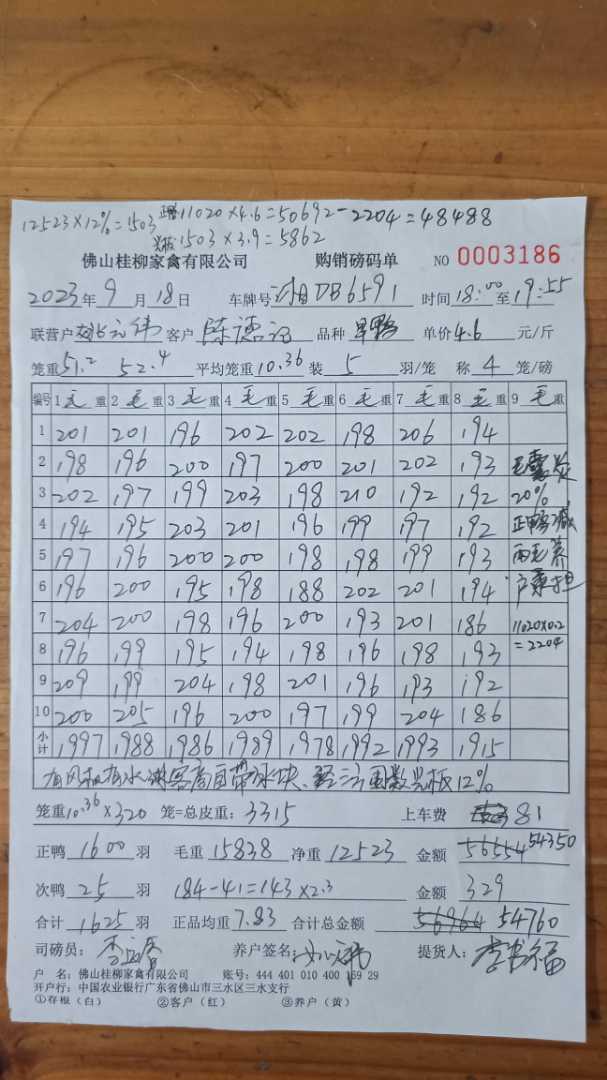 12523×12%=1503 正鸭11020×4.6=50692-2204=48488
1503×3.9=5862
佛山桂柳家禽有限公司 购销磅码单 NO 0003186
2023年9月18日 车牌号 DB6591 时间18:00至19:55
联营户 客户 陈德记 品种 旱鸭 单价4.6元/斤
笼重51.2 52.4 平均笼重10.36装5羽/笼 称4笼/磅
编号 1毛重 2毛重 3毛重 4毛重 5毛重 6毛重 7毛重 8毛重 9毛重
1 201 201 196 202 202 198 206 194
2 198 196 200 197 200 201 202 193
3 202 197 199 203 198 210 192 192 20%
4 194 195 203 201 196 199 197 192 正鸭减
5 197 196 200 200 198 198 199 193 两毛养
6 196 200 195 198 188 202 201 194 户承担
7 204 200 198 196 200 193 201 186 11020×0.2
8 196 199 195 194 198 196 198 193 =2204
9 209 199 204 198 201 196 193 192
10 200 205 196 200 197 199 204 186
小计 1997 1988 1986 1989 1978 1992 1993 1915
有风机有水淋客商自带冰块、 12%
笼重10.36×320 笼=总皮重:3315 上车费 81
正鸭1600羽 毛重15838净重12523 金额 56554 54350
次鸭25羽 184-41=143×2.3 金额 329
合计1625羽 正品均重7.83合计总金额 56964 54760
司磅员: 养户签名: 提货人:
户 名:佛山桂柳家禽有限公司 账号:444 401 010 400 169 29
开户行:中国农业银行广东省佛山市三水区三水支行
①存根(白) ②客户(红) ③养户(黄)